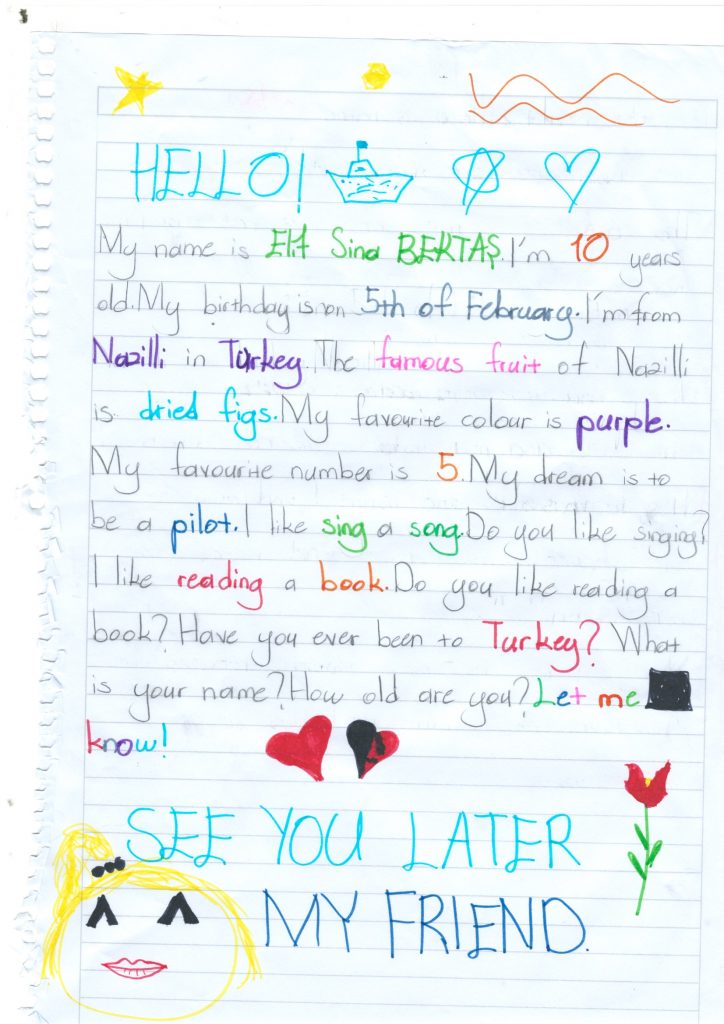 HELLO!
My name is Elif Sina BEKTAŞ. I'm 10 years
old. My birthday is on 5th of February. I'm from
Nazilli in Turkey. The famous fruit of Nazilli
is dried figs. My favourite colour is purple.
My favourite number is 5. My dream is to
be a pilot. I like sing a song. Do you like singing?
I like reading a book. Do you like reading a
book? Have you ever been to Turkey? What
is your name? How old are you? Let me
know!
SEE YOU LATER
MY FRIEND.